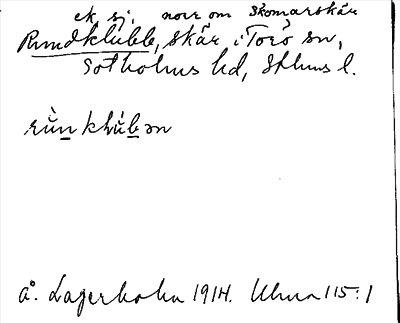 ek. sj. norr om Skomarskär
Rundklubb, skär i Torö sn,
Sotholms hd, Sthlms l.
rùn klúbən
Å. Lagerholm 1914. Uhma 115:1